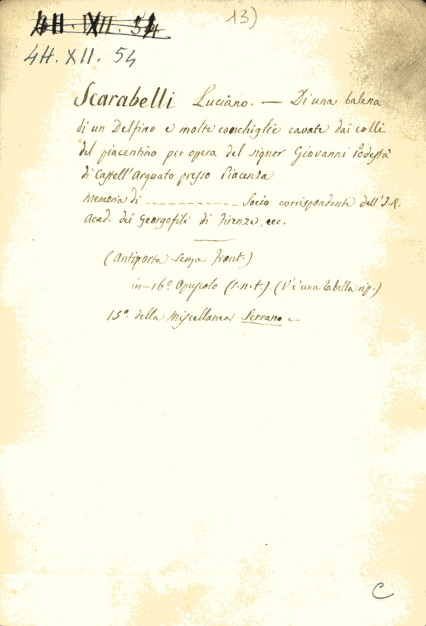 4H. XII. 54
13)
4H. XII. 54
Scarabelli Luciano. — Di una balena
di un Delfino e molte conchiglie cavate dai colli
del piacentino per opera del signor Giovanni Podestà
di Castell'Arquato presso Piacenza
Memoria di ---------- Socio corrispondente dell'I. R.
Acad. dei Georgofili di Firenze, ecc.
(Antiporta senza Front.)
in-16º Opuscolo (s. n. t.) (V'è una tabella rip.)
15º della Miscellanea Serrano
C